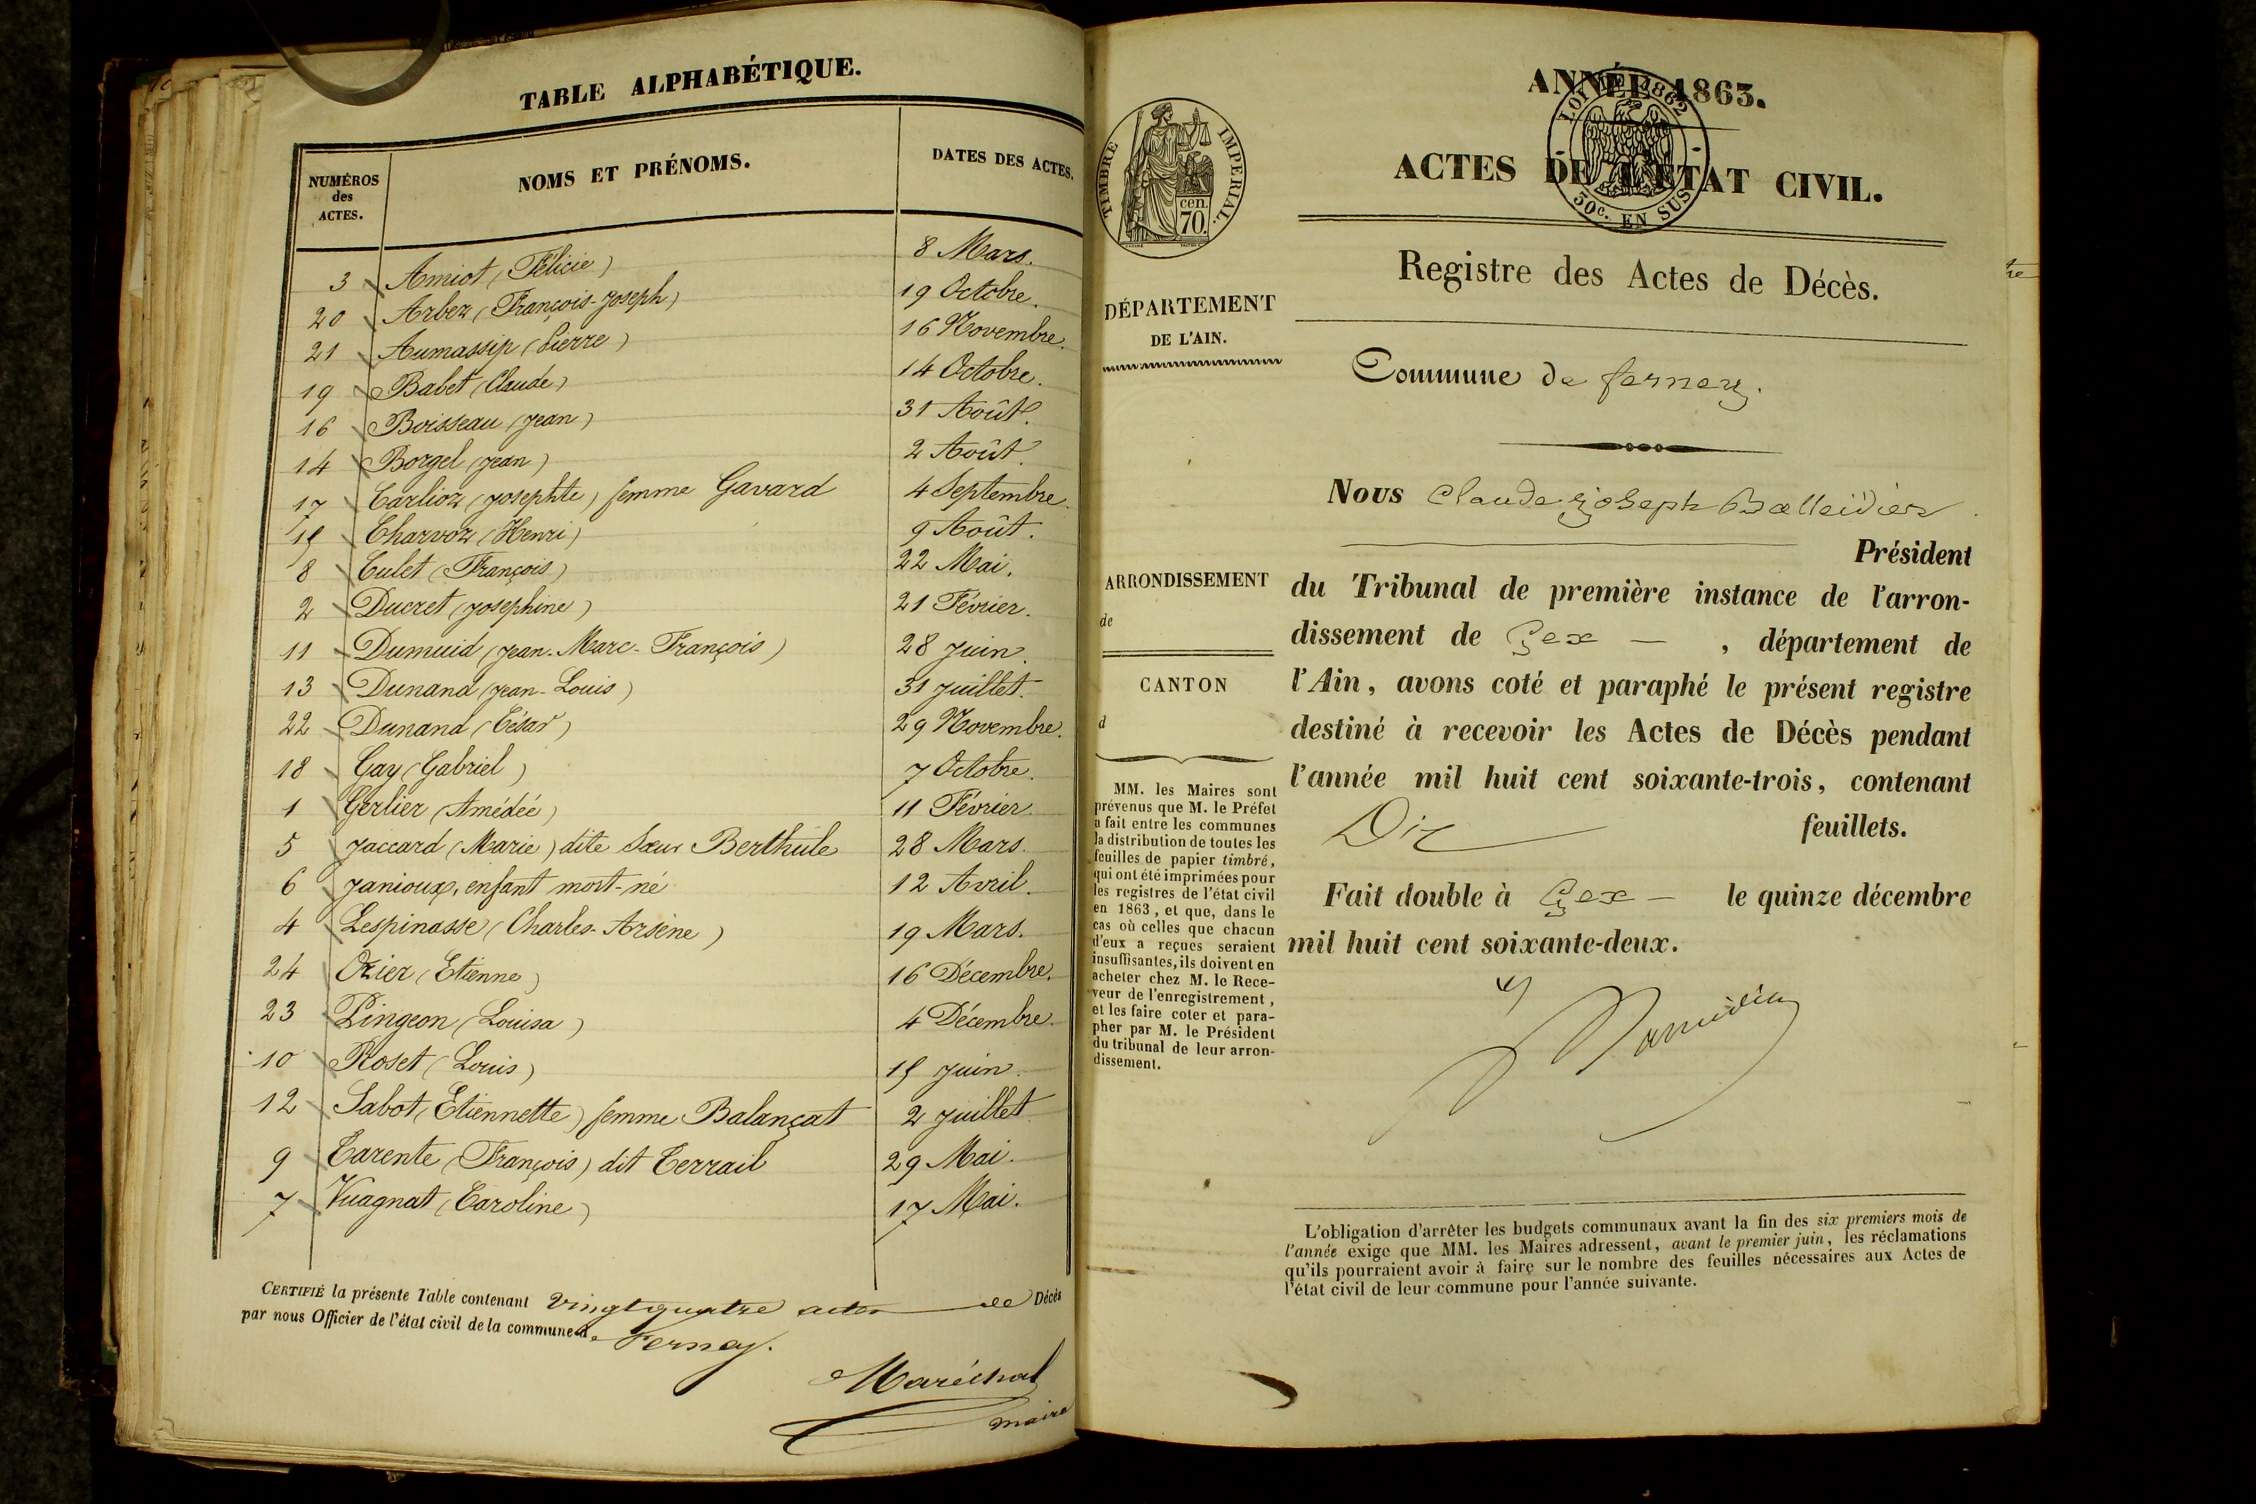 TABLE ALPHABÉTIQUE.
NUMÉROS
des
ACTES.
NOMS ET PRÉNOMS.
DATES DES ACTES.
3 Amiot (Félicie) 8 Mars.
20 Arbez (François-Joseph) 19 Octobre.
21 Aumassip (Pierre) 16 Novembre.
19 Babet (Claude) 14 Octobre.
16 Boisseau (Jean) 31 Août.
14 Borgel (Jean) 2 Août.
17 Carlioz (Josephte) femme Gavard 4 Septembre.
15 Charvoz (Henri) 9 Août.
8 Culet (François) 22 Mai.
2 Ducret (Josephine) 21 Février.
11 Dumuid (Jean-Marc-François) 28 Juin.
13 Dunand (Jean-Louis) 31 Juillet.
22 Dunand (César) 29 Novembre.
18 Gay (Gabriel) 7 Octobre.
1 Gerlier (Amédée) 11 Février.
5 Jaccard (Marie) dite Sœur Berthule 28 Mars.
6 Janioux, enfant mort-né 12 Avril.
4 Lespinasse (Charles-Arsène) 19 Mars.
24 Ozier (Etienne) 16 Décembre.
23 Pingeon (Louisa) 4 Décembre.
10 Roset (Louis) 15 Juin.
12 Sabot (Etiennette) femme Balançat 2 Juillet.
9 Tarente (François) dit Terrail 29 Mai.
7 Vuagnat (Caroline) 17 Mai.
CERTIFIÉ la présente Table contenant vingt quatre actes de Décès
par nous Officier de l'état civil de la commune de Ferney.
Maréchal
maire
ANNÉE 1863.
LOI 1862
30c. EN SUS
TIMBRE IMPERIAL.
cen.
70.
ACTES DE L'ETAT CIVIL.
Registre des Actes de Décès.
DÉPARTEMENT
DE L'AIN.
Commune de ferney.
Nous Claude-joseph Balleidier
Président
ARRONDISSEMENT
de
CANTON
d
du Tribunal de première instance de l'arron-
dissement de Gex — , département de
l'Ain, avons coté et paraphé le présent registre
destiné à recevoir les Actes de Décès pendant
l'année mil huit cent soixante-trois, contenant
Dix feuillets.
Fait double à Gex — le quinze décembre
mil huit cent soixante-deux.
MM. les Maires sont
prévenus que M. le Préfet
a fait entre les communes
la distribution de toutes les
feuilles de papier timbré,
qui ont été imprimées pour
les registres de l'état civil
en 1863, et que, dans le
cas où celles que chacun
d'eux a reçues seraient
insuffisantes, ils doivent en
acheter chez M. le Rece-
veur de l'enregistrement,
et les faire coter et para-
pher par M. le Président
du tribunal de leur arron-
dissement.
L'obligation d'arrêter les budgets communaux avant la fin des six premiers mois de
l'année exige que MM. les Maires adressent, avant le premier juin, les réclamations
qu'ils pourraient avoir à faire sur le nombre des feuilles nécessaires aux Actes de
l'état civil de leur commune pour l'année suivante.